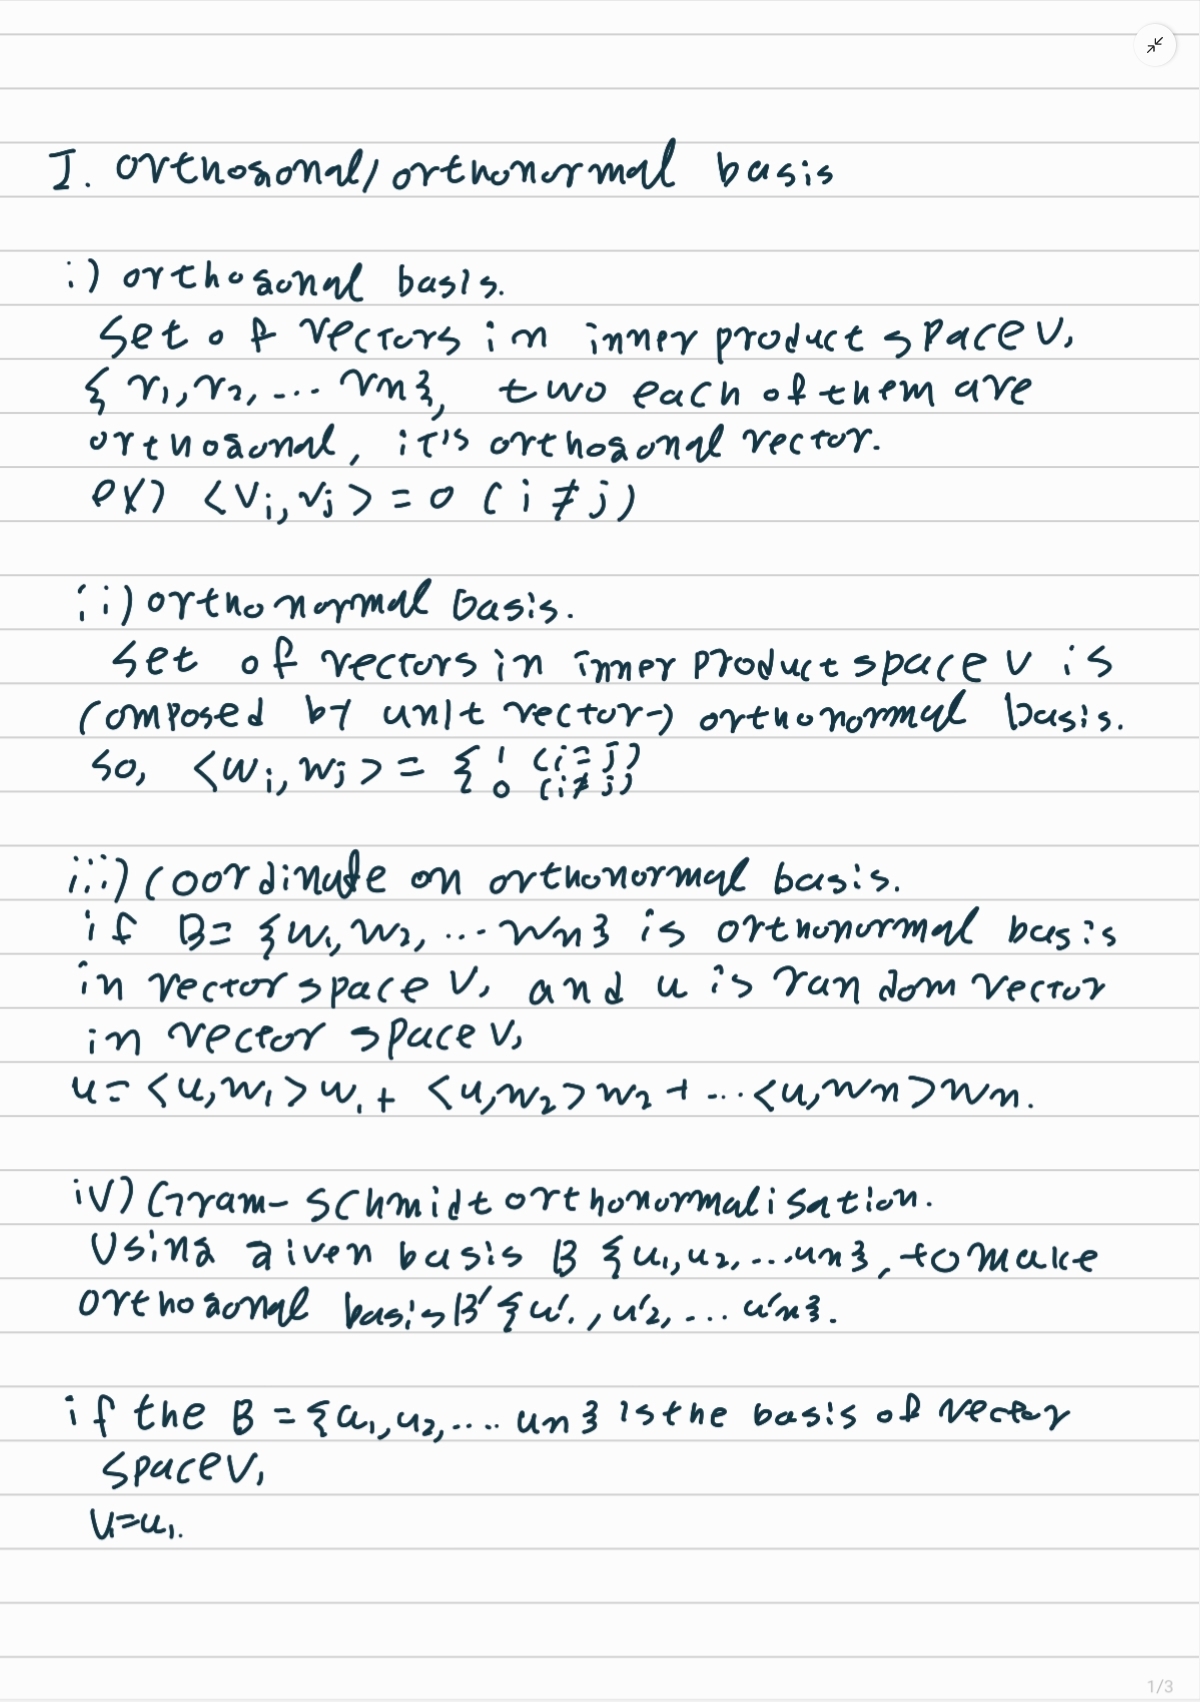 I. orthogonal/orthonormal basis
i) orthogonal basis.
Set of vectors in inner product space V,
{v1, v2, ... vn}, two each of them are
orthogonal, it's orthogonal vector.
ex) <vi, vj> = 0 (i ≠ j)
ii) orthonormal basis.
Set of vectors in inner product space V is
composed by unit vector→ orthonormal basis.
So, <wi, wj> = { 1 (i = j)
0 (i ≠ j)
iii) Coordinate on orthonormal basis.
if B = {w1, w2, ... wn} is orthonormal basis
in vector space V, and u is random vector
in vector space V,
u = <u, w1> w1 + <u, w2> w2 + ... <u, wn> wn.
iv) Gram-Schmidt orthonormalisation.
Using given basis B {u1, u2, ... un}, to make
orthogonal basis B' {u'1, u'2, ... u'n}.
if the B = {u1, u2, .... un} is the basis of vector
space V,
V1 = u1.
1/3